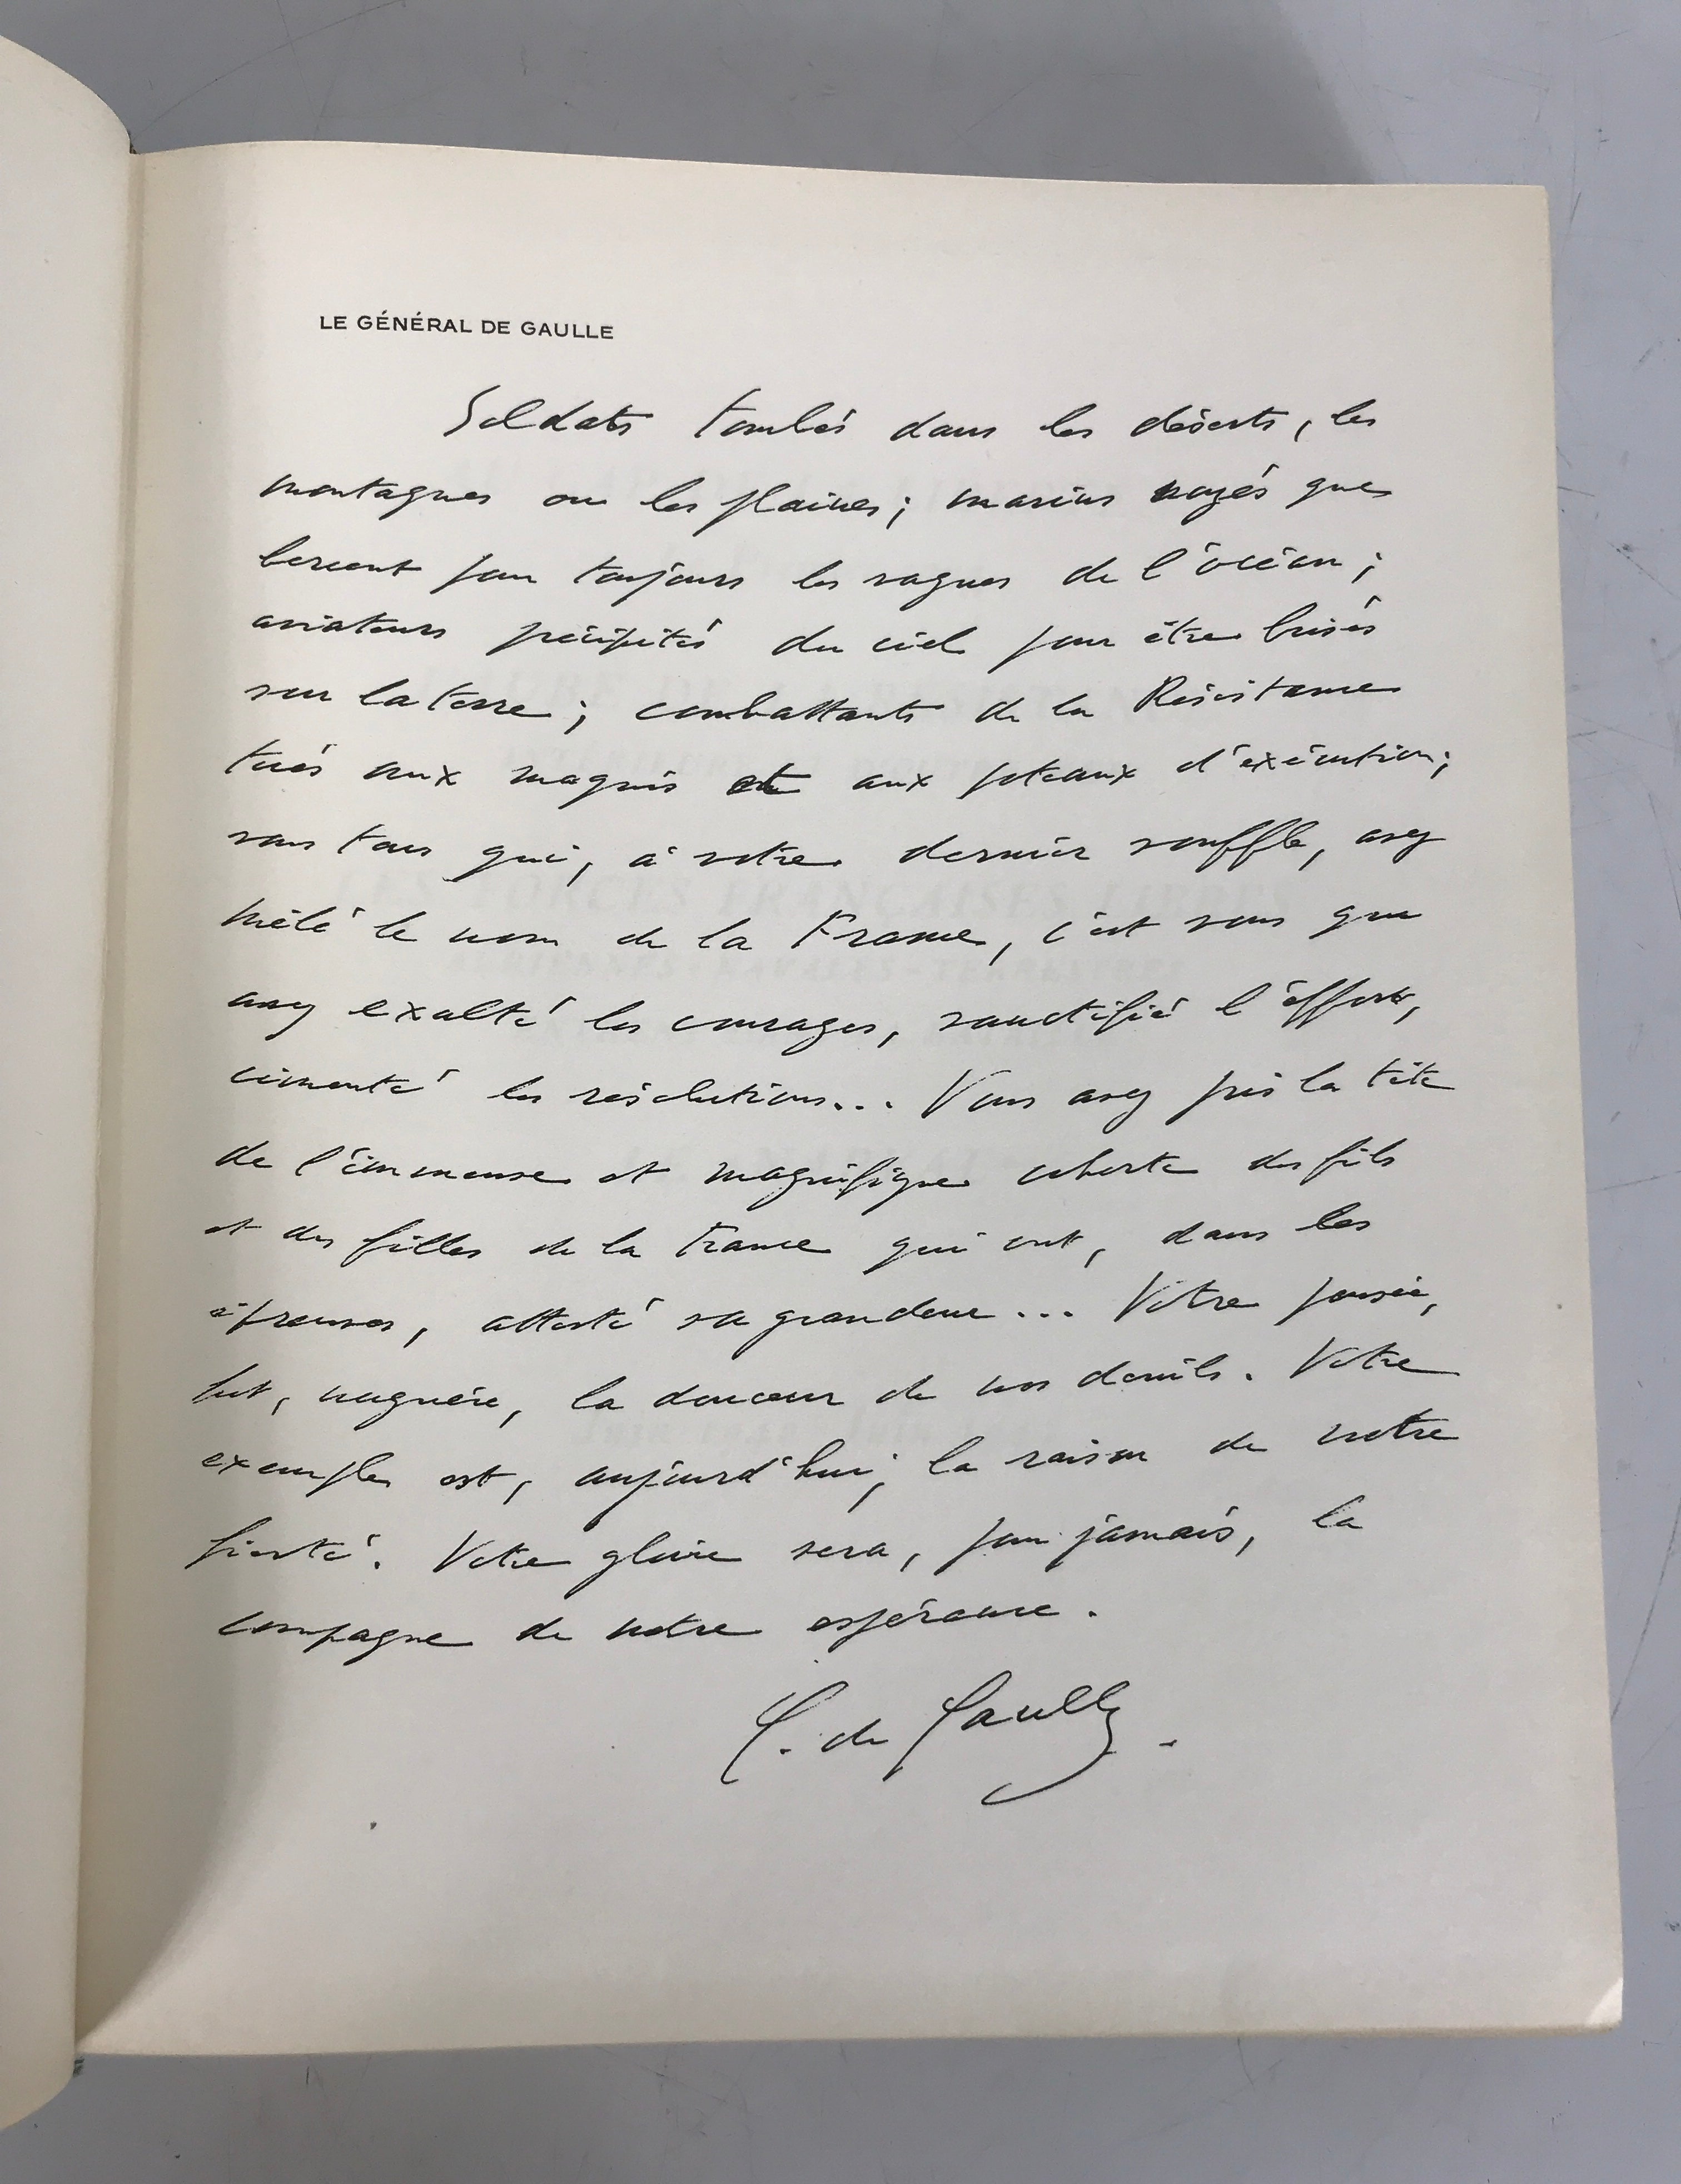 LE GÉNÉRAL DE GAULLE
Soldats tombés dans les déserts, les
montagnes ou les plaines ; marins noyés que
bercent pour toujours les vagues de l'océan ;
aviateurs précipités du ciel pour être brisés
sur la terre ; combattants de la Résistance
tués aux maquis et aux poteaux d'exécution ;
vous tous qui, à votre dernier souffle, avez
mêlé le nom de la France, c'est vous qui
avez exalté les courages, sanctifié l'effort,
cimenté les résolutions... Vous avez pris la tête
de l'immense et magnifique cohorte des fils
et des filles de la France qui ont, dans les
épreuves, attesté sa grandeur... Votre pensée,
fut, naguère, la douceur de nos deuils. Votre
exemple est, aujourd'hui, la raison de notre
fierté. Votre gloire sera, pour jamais, la
compagne de notre espérance.
C. de Gaulle.